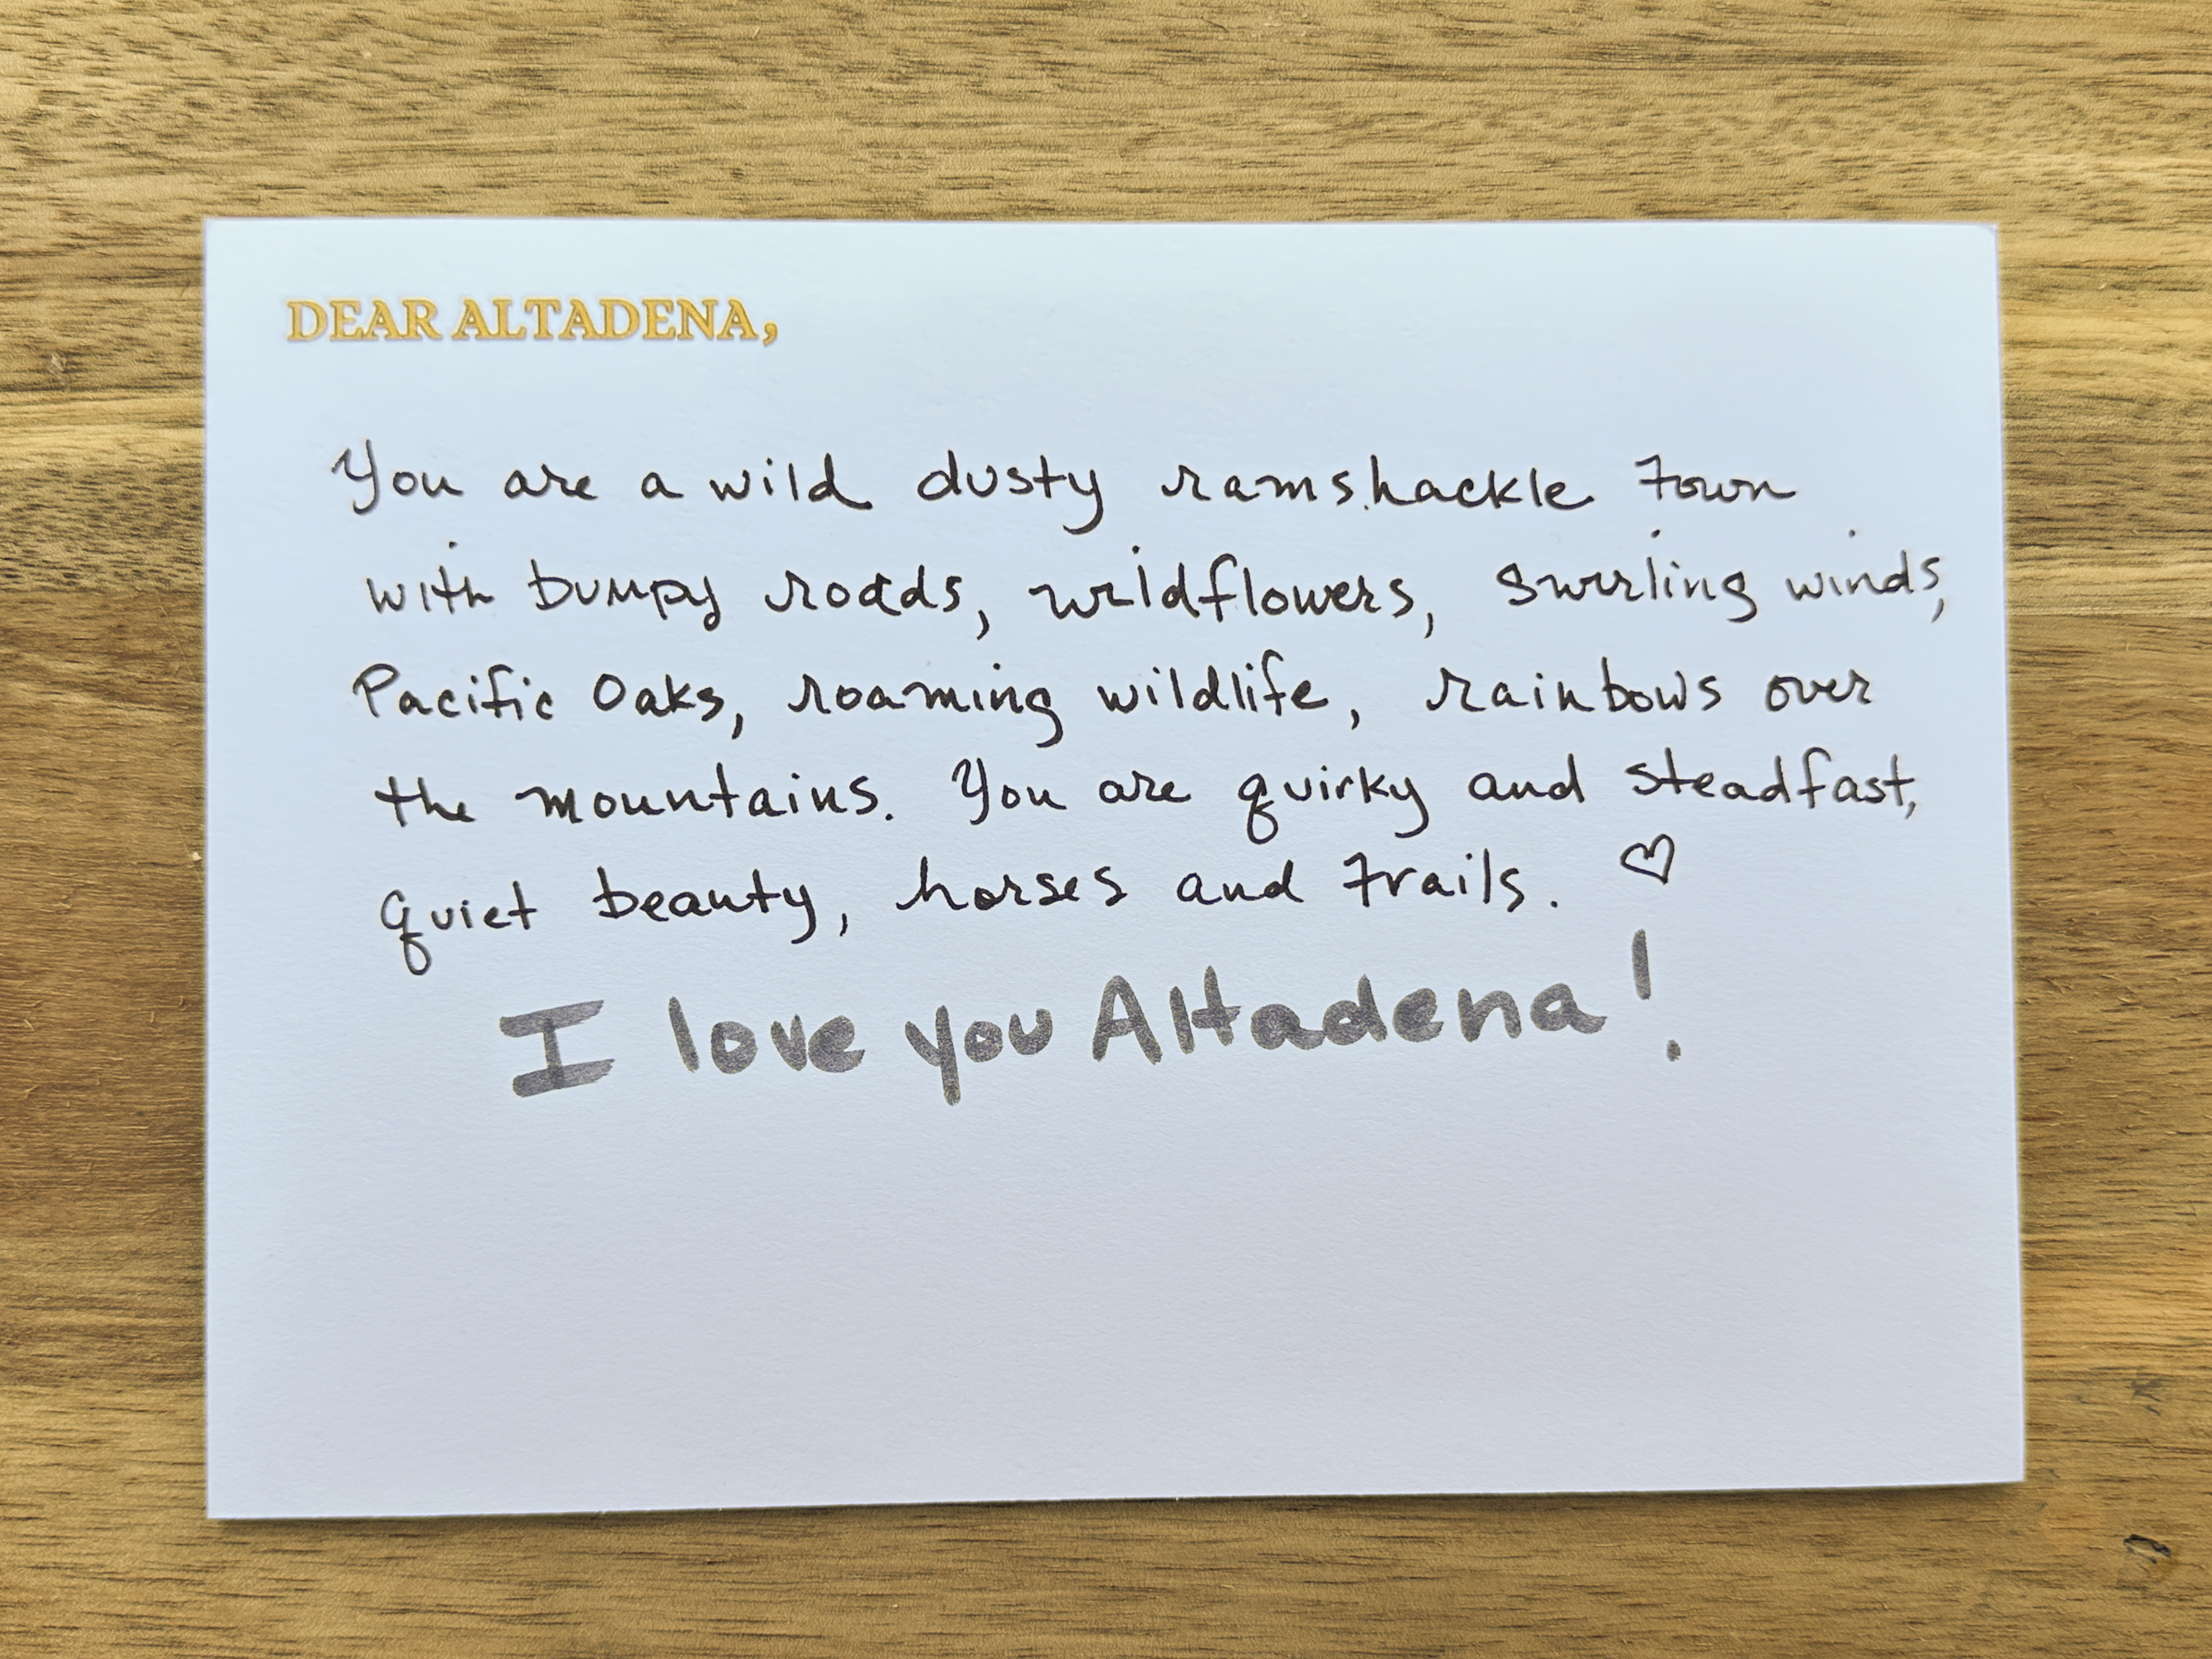 DEAR ALTADENA,
You are a wild dusty ramshackle town
with bumpy roads, wildflowers, swirling winds,
Pacific Oaks, roaming wildlife, rainbows over
the mountains. You are quirky and steadfast,
quiet beauty, horses and trails. ♡
I love you Altadena!